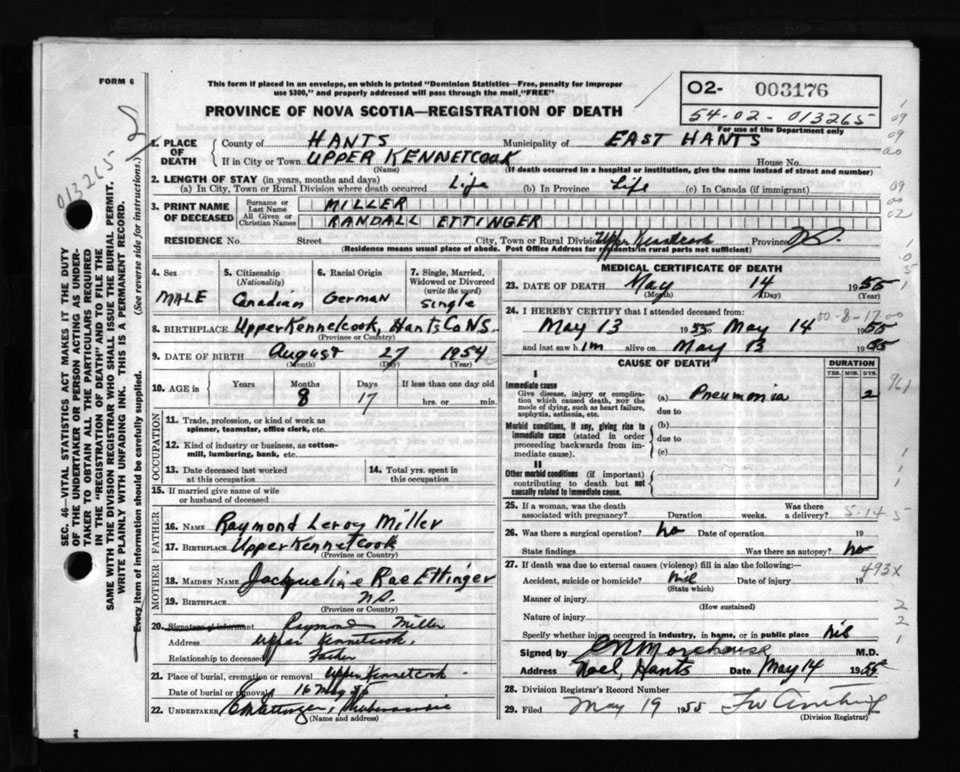 FORM 6
This form if placed in an envelope, on which is printed "Dominion Statistics—Free, penalty for improper
use $300," and properly addressed will pass through the mail, "FREE"
PROVINCE OF NOVA SCOTIA—REGISTRATION OF DEATH
O2- 003176
54-02-013265
For use of the Department only
013265
SEC. 46—VITAL STATISTICS ACT MAKES IT THE DUTY
OF THE UNDERTAKER OR PERSON ACTING AS UNDER-
TAKER TO OBTAIN ALL THE PARTICULARS REQUIRED
IN THE "REGISTRATION OF DEATH" AND TO FILE THE
SAME WITH THE DIVISION REGISTRAR WHO SHALL ISSUE THE BURIAL PERMIT.
WRITE PLAINLY WITH UNFADING INK. THIS IS A PERMANENT RECORD.
Every item of information should be carefully supplied. (See reverse side for instructions.)
1. PLACE OF DEATH County of HANTS Municipality of EAST HANTS
If in City or Town UPPER KENNETCOOK House No.
(Name) (If death occurred in a hospital or institution, give the name instead of street and number)
2. LENGTH OF STAY (in years, months and days)
(a) In City, Town or Rural Division where death occurred Life (b) In Province Life (c) In Canada (if immigrant)
3. PRINT NAME OF DECEASED Surname or Last Name MILLER
All Given or Christian Names RANDALL ETTINGER
RESIDENCE No. Street City, Town or Rural Division Upper Kennetcook Province N.S.
(Residence means usual place of abode. Post Office Address for residents in rural parts not sufficient)
4. Sex MALE
5. Citizenship (Nationality) Canadian
6. Racial Origin German
7. Single, Married, Widowed or Divorced (write the word) Single
8. BIRTHPLACE Upper Kennetcook, Hants Co N.S.
(Province or Country)
9. DATE OF BIRTH August 27 1954
(Month) (Day) (Year)
10. AGE in Years Months 8 Days 17 If less than one day old hrs. or min.
OCCUPATION
11. Trade, profession, or kind of work as
spinner, teamster, office clerk, etc.
12. Kind of industry or business, as cotton-
mill, lumbering, bank, etc.
13. Date deceased last worked at this occupation
14. Total yrs. spent in this occupation
15. If married give name of wife
or husband of deceased
FATHER
16. NAME Raymond Leroy Miller
17. BIRTHPLACE Upper Kennetcook
(Province or Country)
MOTHER
18. MAIDEN NAME Jacqueline Rae Ettinger
19. BIRTHPLACE N.S.
(Province or Country)
20. Signature of informant Raymond Miller
Address Upper Kennetcook.
Relationship to deceased Father
21. Place of burial, cremation or removal Upper Kennetcook
Date of burial or removal 16 May 55
22. UNDERTAKER Ettinger,
(Name and address)
MEDICAL CERTIFICATE OF DEATH
23. DATE OF DEATH May 14 1955
(Month) (Day) (Year)
24. I HEREBY CERTIFY that I attended deceased from:
00-8-17 00
May 13 1955 May 14 1955
and last saw him alive on May 13 1955
CAUSE OF DEATH DURATION
YRS. MOS. DYS.
I
Immediate cause
Give disease, injury or complica-
tion which caused death, not the
mode of dying, such as heart failure,
asphyxia, asthenia, etc.
(a) Pneumonia 2
due to
Morbid conditions, if any, giving rise to
immediate cause (stated in order
proceeding backwards from im-
mediate cause).
(b)
due to
(c)
II
Other morbid conditions (if important)
contributing to death but not
causally related to immediate cause.
25. If a woman, was the death associated with pregnancy? Duration weeks. Was there a delivery?
5-14-5
26. Was there a surgical operation? no Date of operation 19
State findings Was there an autopsy? no
27. If death was due to external causes (violence) fill in also the following:—
493X
Accident, suicide or homicide? nil Date of injury 19
(State which)
Manner of injury
(How sustained)
Nature of injury
Specify whether injury occurred in industry, in home, or in public place nil
Signed by Morehouse M.D.
Address Noel, Hants Date May 14 1955
28. Division Registrar's Record Number
29. Filed May 19 1955
(Division Registrar)